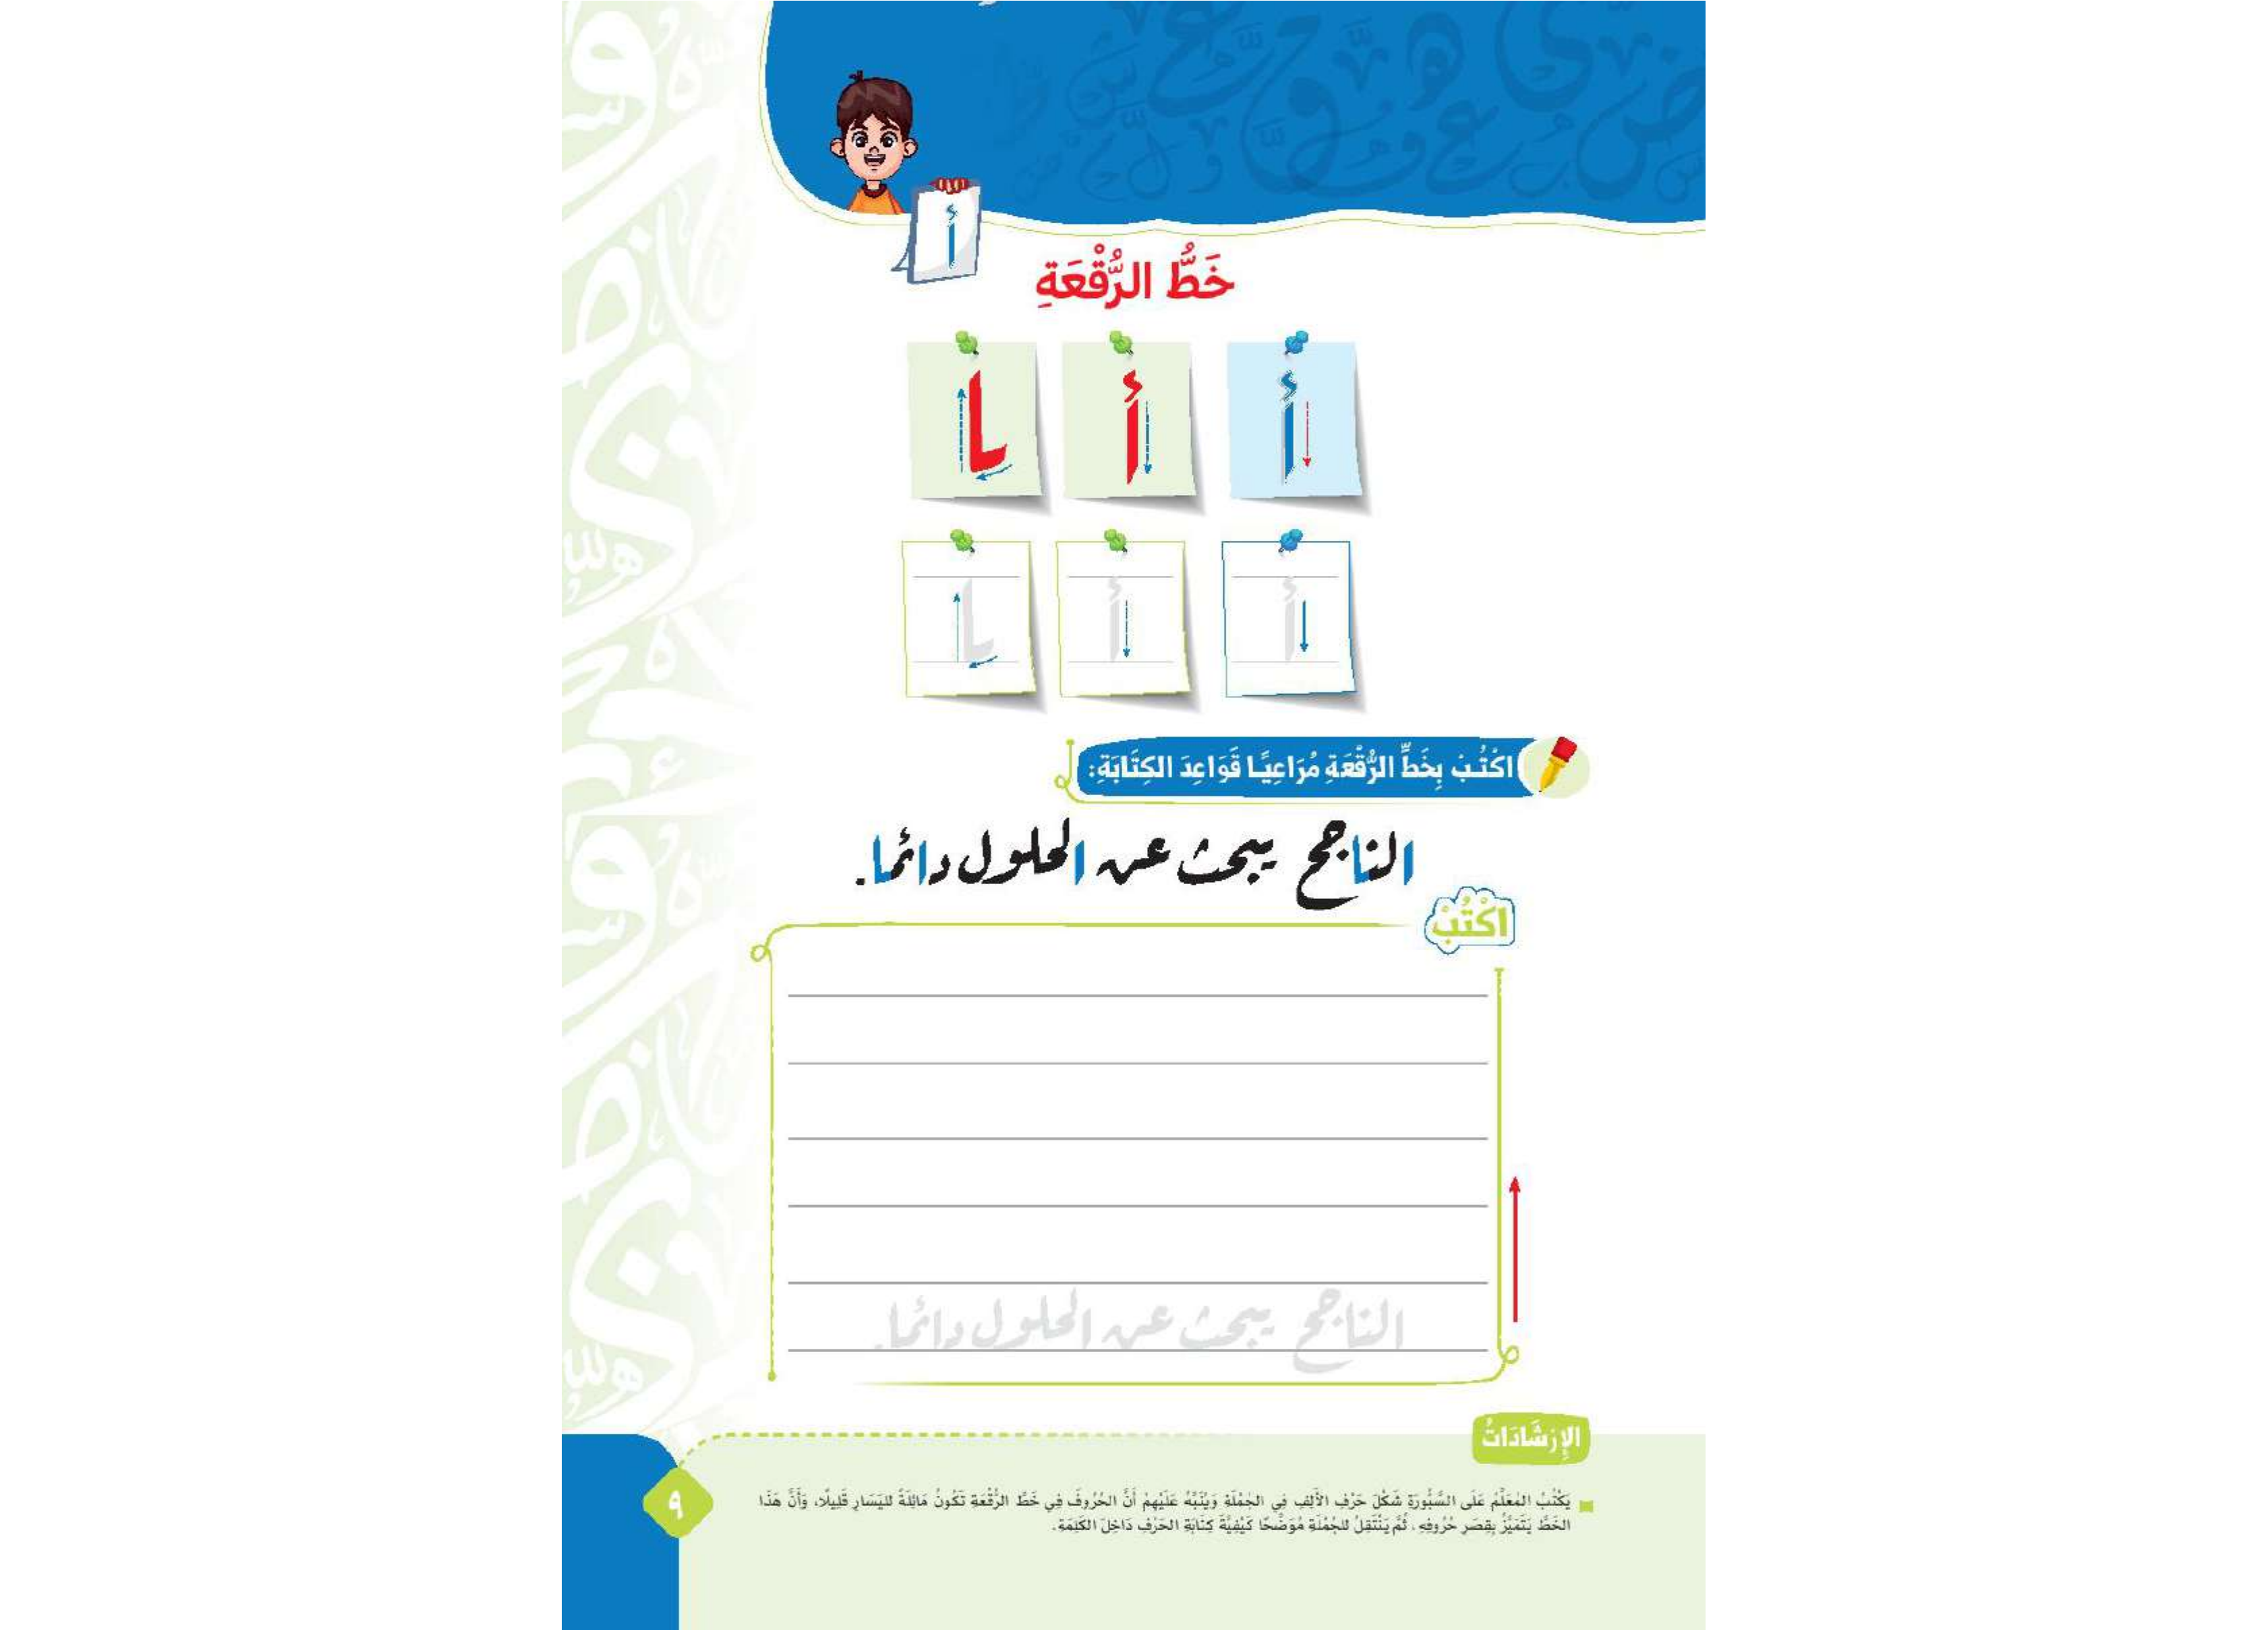 أَ
خَطُّ الرُّقْعَةِ
أَ أَ ـا
أَ أَ ـا
اكْتُبْ بِخَطِّ الرُّقْعَةِ مُرَاعِيًا قَوَاعِدَ الكِتَابَةِ:
الناجح يبحث عن الحلول دائما.
اكْتُبْ
الناجح يبحث عن الحلول دائما.
الإِرْشَادَاتُ
يَكْتُبُ المُعَلِّمُ عَلَى السَّبُّورَةِ شَكْلَ حَرْفِ الأَلِفِ فِي الجُمْلَةِ وَيُنَبِّهُ عَلَيْهِمْ أَنَّ الحُرُوفَ فِي خَطِّ الرُّقْعَةِ تَكُونُ مَائِلَةً لليَسَارِ قَلِيلًا، وَأَنَّ هَذَا
الخَطَّ يَتَمَيَّزُ بِقِصَرِ حُرُوفِهِ، ثُمَّ يَنْتَقِلُ للجُمْلَةِ مُوَضِّحًا كَيْفِيَّةَ كِتَابَةِ الحَرْفِ دَاخِلَ الكَلِمَةِ.
٩